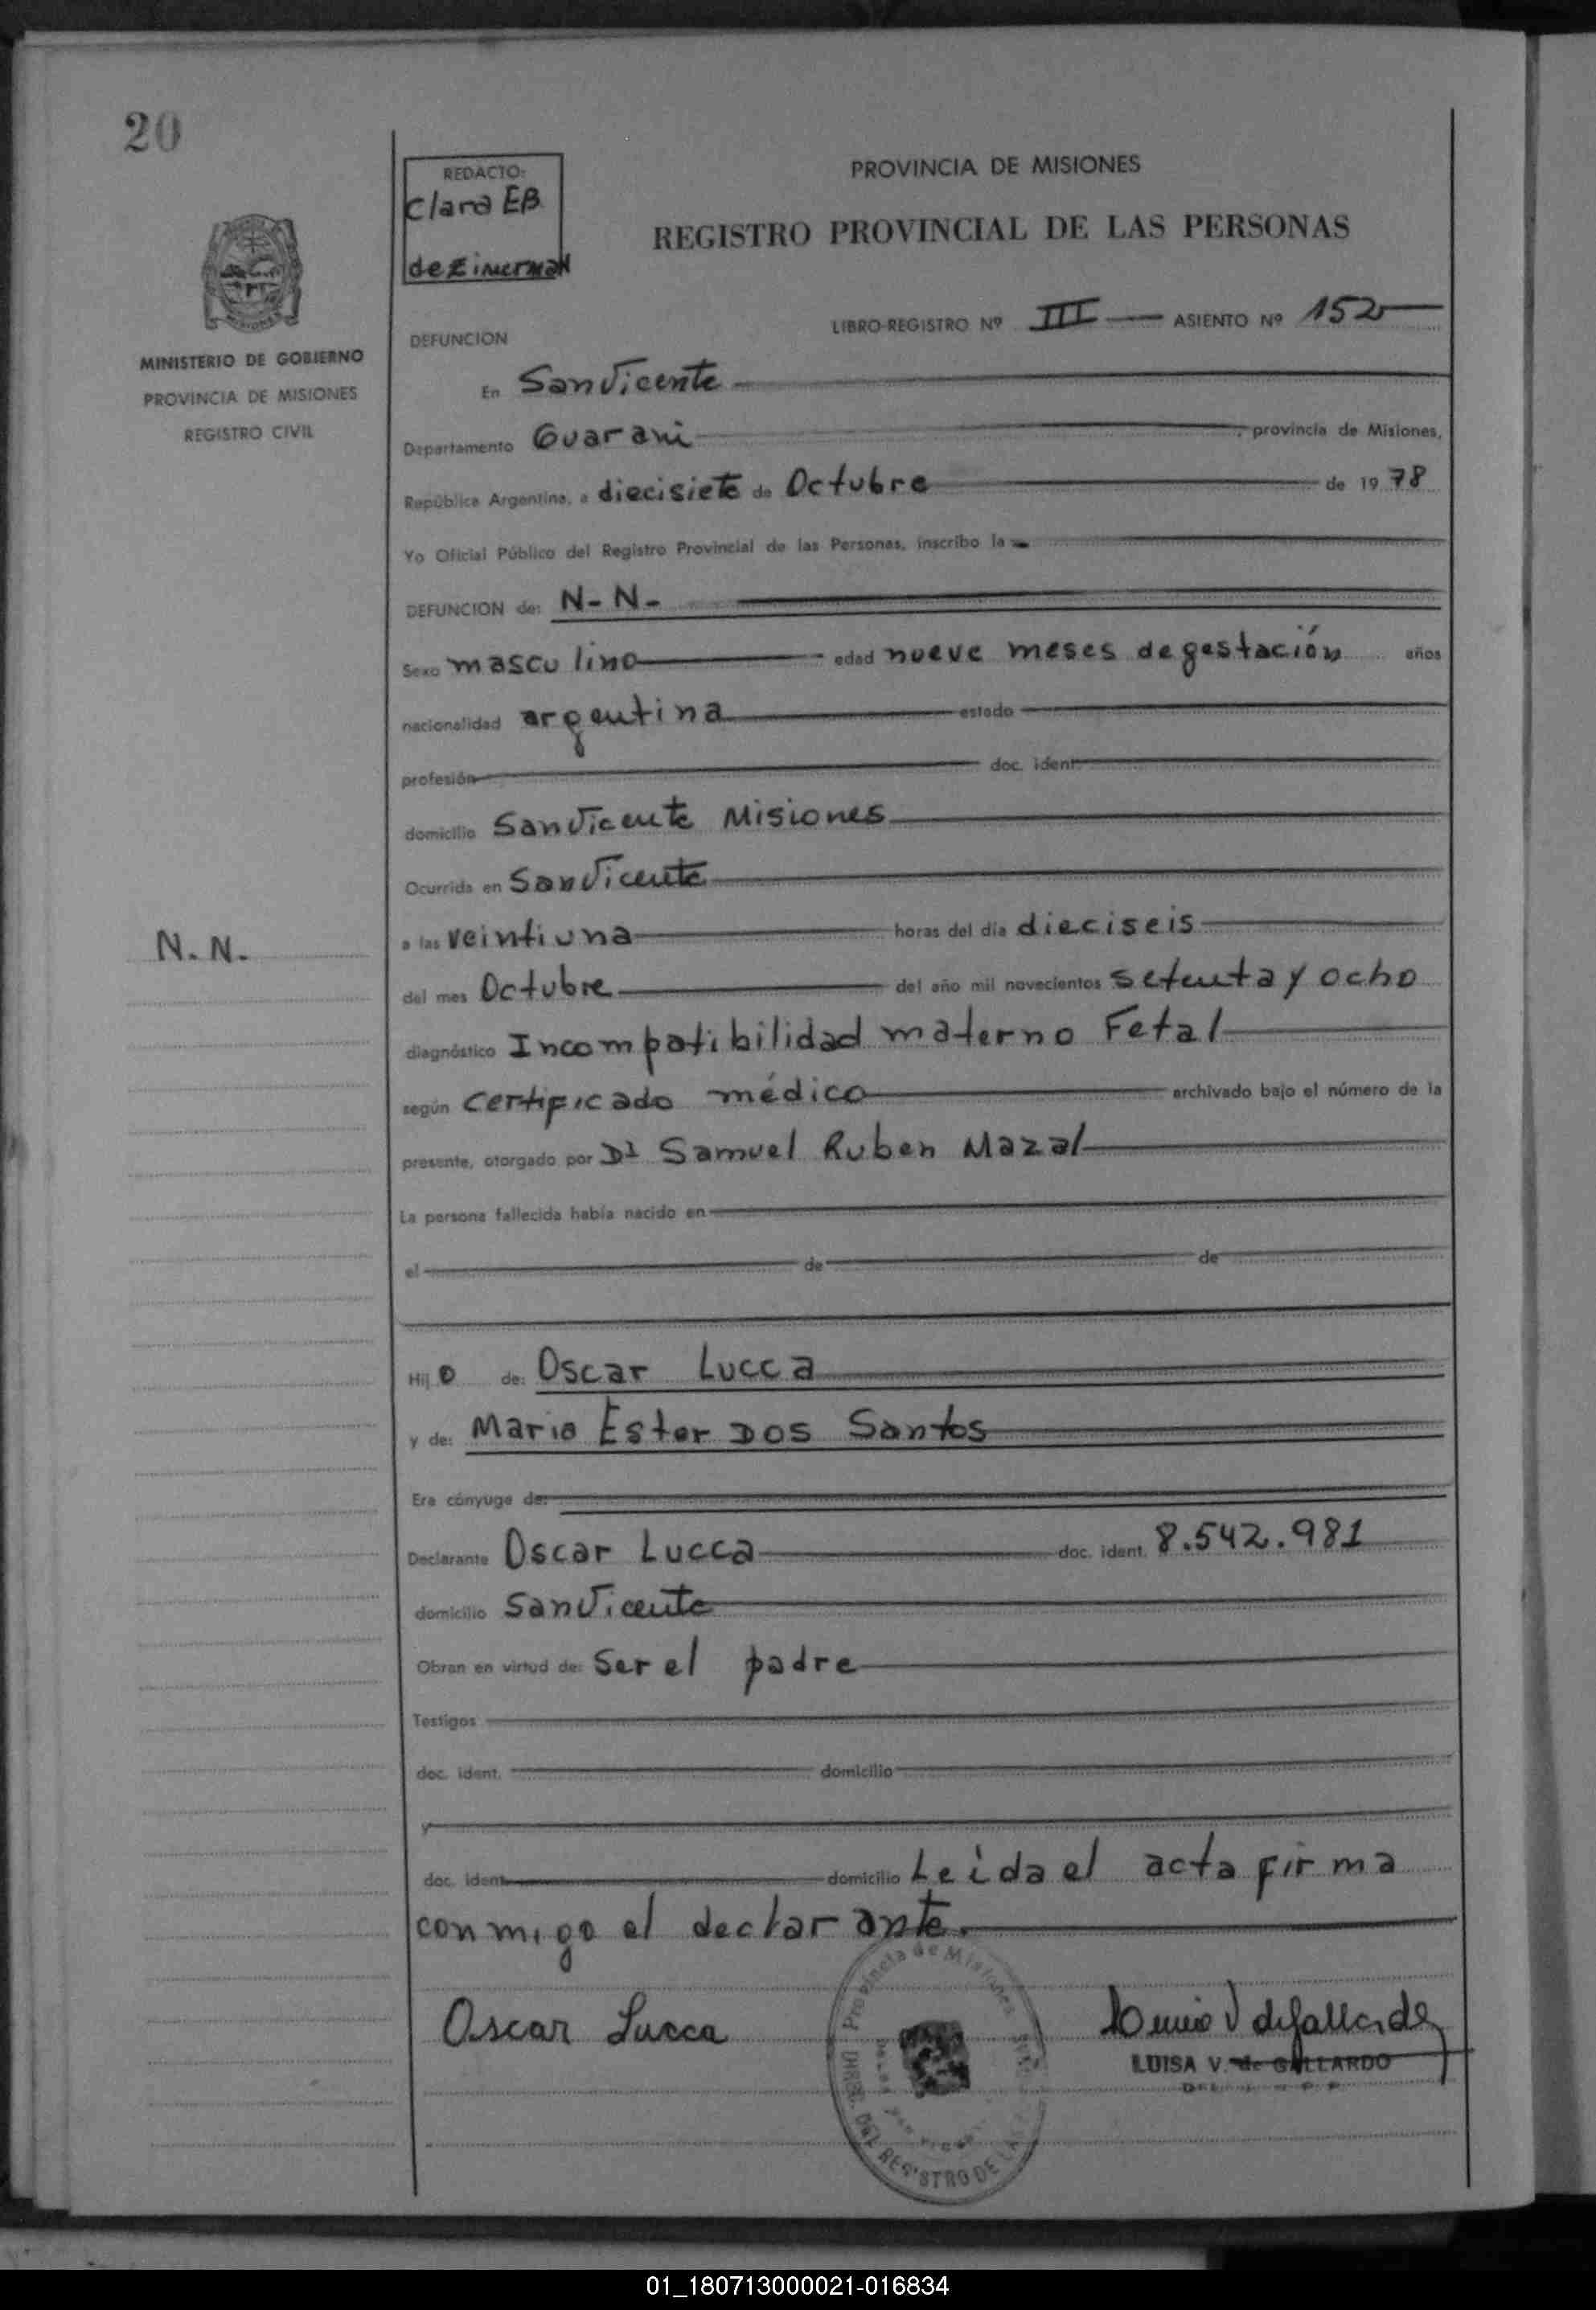 20
REDACTO:
Clara EB
de Zimerman
PROVINCIA DE MISIONES
REGISTRO PROVINCIAL DE LAS PERSONAS
MINISTERIO DE GOBIERNO
PROVINCIA DE MISIONES
REGISTRO CIVIL
LIBRO-REGISTRO Nº III ASIENTO Nº 152
DEFUNCION
En San Vicente
Departamento Guarani, provincia de Misiones,
República Argentina, a diecisiete de Octubre de 1978
Yo Oficial Público del Registro Provincial de las Personas, inscribo la
DEFUNCION de: N-N-
Sexo masculino edad nueve meses de gestación años
nacionalidad argentina estado
profesión doc. ident.
domicilio San Vicente Misiones
Ocurrida en San Vicente
N.N.
a las veintiuna horas del día dieciseis
del mes Octubre del año mil novecientos setenta y ocho
diagnóstico Incompatibilidad materno Fetal
según certificado médico archivado bajo el número de la
presente, otorgado por Dr Samuel Ruben Mazal
La persona fallecida había nacido en
el de de
Hijo de: Oscar Lucca
y de: Maria Ester Dos Santos
Era cónyuge de:
Declarante Oscar Lucca doc. ident. 8.542.981
domicilio San Vicente
Obran en virtud de: Ser el padre
Testigos
doc. ident. domicilio
y
doc. ident. domicilio Leida el acta firma
conmigo el declarante.
Oscar Lucca
Provincia de Misiones
DEL REGISTRO DE LAS
LUISA V. de GALLARDO
01_180713000021-016834